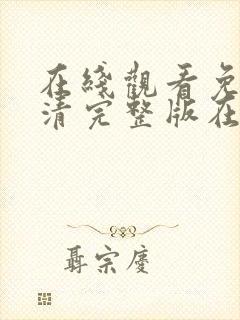 在綫觀看免
清完整版在
聶宗慶